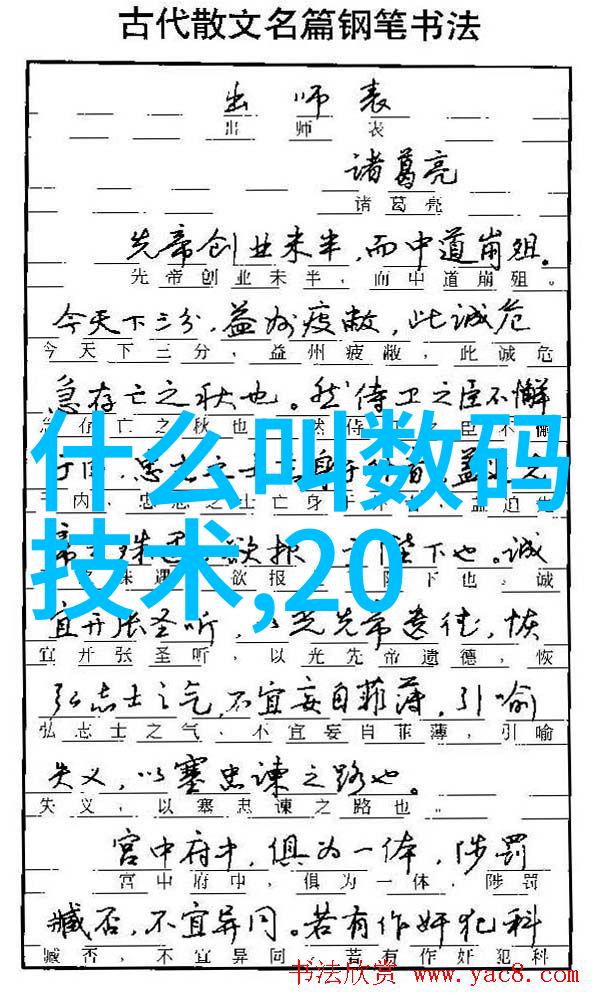 古代散文名篇钢笔书法
出师表
出师表
诸葛亮
诸葛亮
先帝创业未半,而中道崩殂。
先帝创业未半,而中道崩殂。
今天下三分,益州疲敝,此诚危
今天下三分,益州疲敝,此诚危
急存亡之秋也。然侍卫之臣不懈
存亡之秋也 然侍 之臣不懈
什么叫数码
忠志之士 身于外 盖
于内 忠志之士亡身于外 盖追
技术,20
帝 殊遇 欲报 陛下也。诚
殊遇 欲报 陛下也,诚
宜开张圣听, 光先帝遗德,恢
宜开张圣听,以光先帝遗德,恢
弘志士之气,不宜妄自菲薄,引喻
弘志士之气,不宜妄自菲薄,引喻
失义,以塞忠谏之路也。
失义,以塞忠谏之路也。
宫中府中,俱为一体,陟罚
宫中府中,俱为一体,陟罚
臧否,不宜异同。若有作奸犯科
臧否,不宜异同 若有作奸犯科
书法欣赏 www.yac8.com